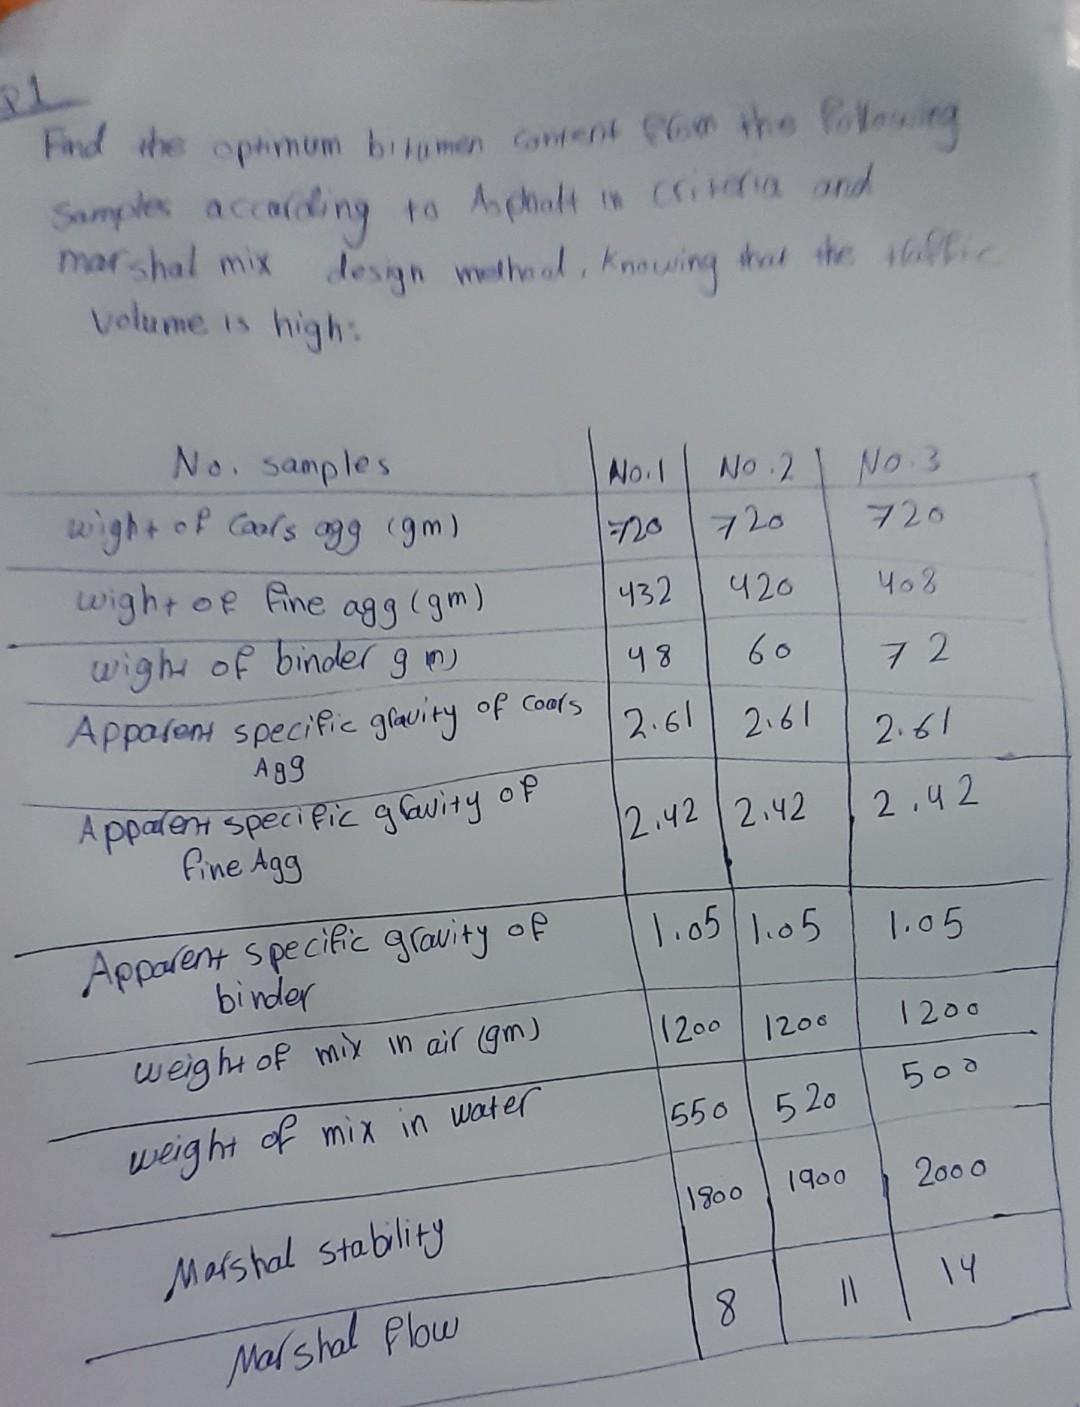 Q1
Find the optimum bitumen content from the following
Samples according to Asphalt in criteria and
marshal mix design method, Knowing that the traffic
Volume is high:
No. samples No.1 No.2 No.3
wight of Coars agg (gm) 720 720 720
wight of fine agg (gm) 432 420 408
wight of binder gm) 48 60 72
Apparent specific gravity of coars 2.61 2.61 2.61
Agg
Apparent specific gravity of 2.42 2.42 2.42
fine Agg
Apparent specific gravity of 1.05 1.05 1.05
binder
weight of mix in air (gm) 1200 1200 1200
weight of mix in water 550 520 500
Marshal stability 1800 1900 2000
Marshal flow 8 11 14